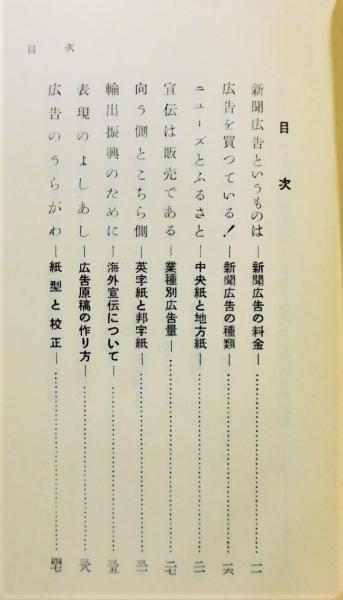 目次
目次
新聞広告というものは―新聞広告の料金―……一
広告を買つている!―新聞広告の種類―……一六
ニューズとふるさと―中央紙と地方紙―……二一
宣伝は販売である―業種別広告量―……二七
向う側とこちら側―英字紙と邦字紙―……三一
輸出振興のために―海外宣伝について―……三五
表現のよしあし―広告原稿の作り方―……三八
広告のうらがわ―紙型と校正―……四七